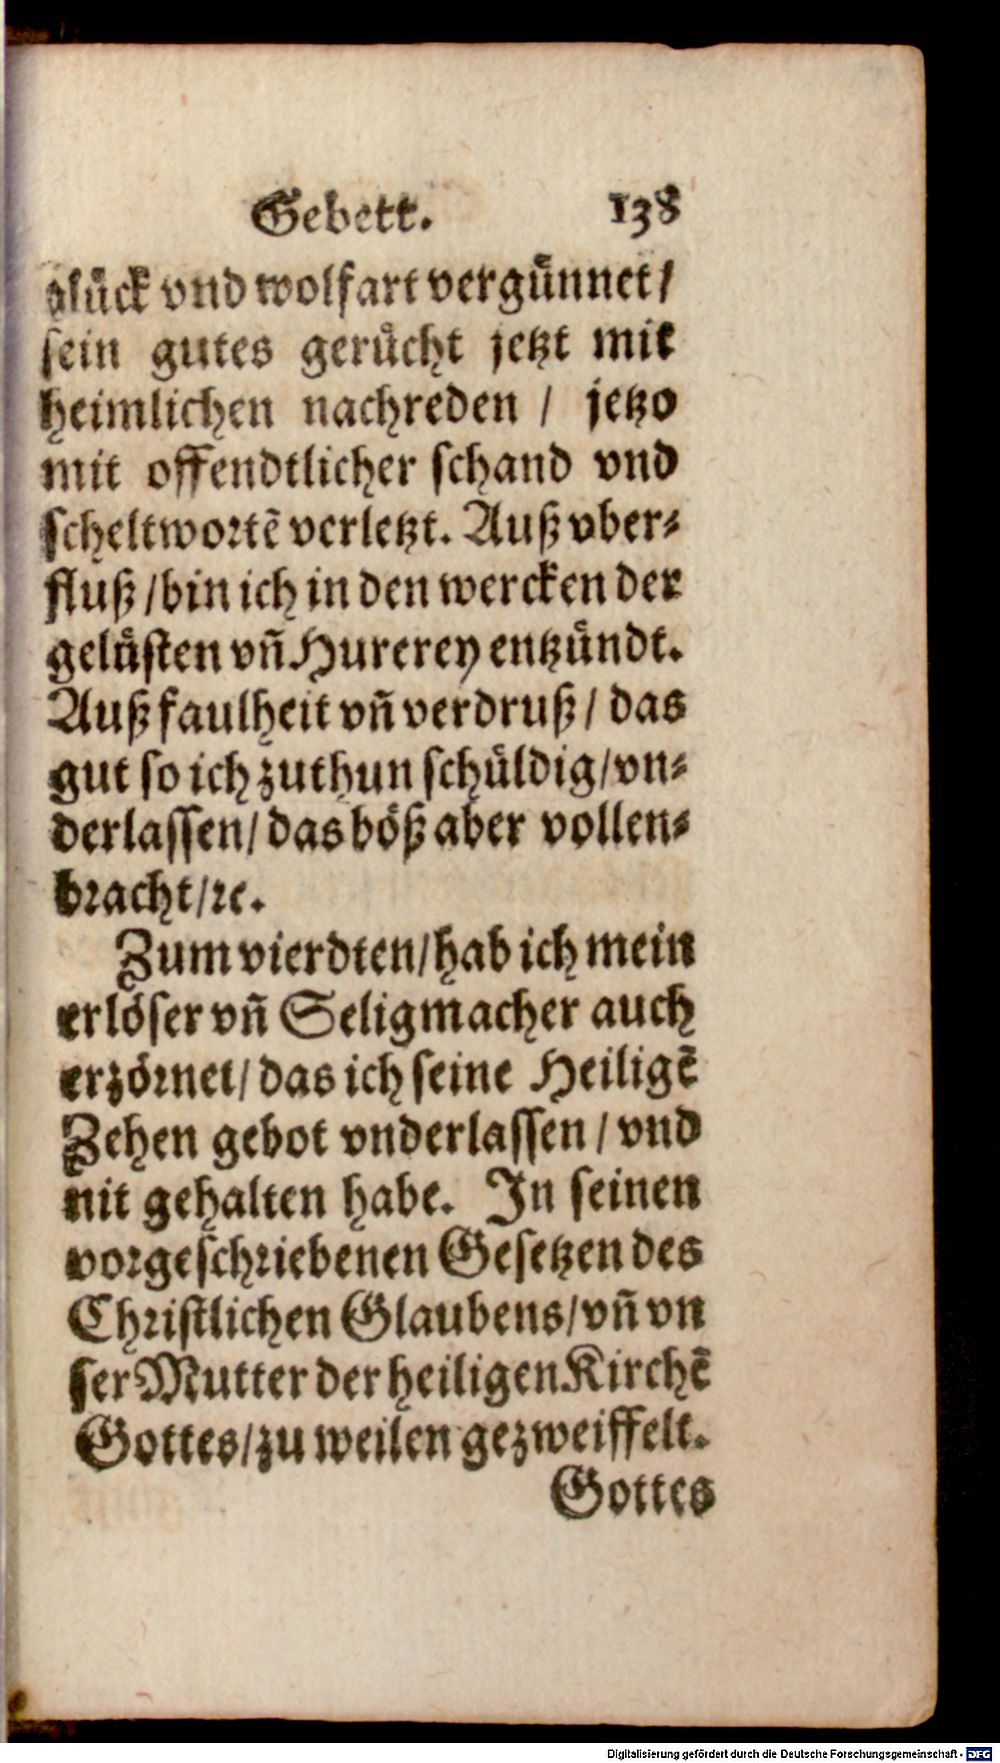 Gebett. 138
glück vnd wolfart vergünnet/
sein gutes gerücht jetzt mit
heimlichen nachreden / jetzo
mit offendtlicher schand vnd
scheltwortē verletzt. Auß vber⸗
fluß/bin ich in den wercken der
gelüsten vñ Hurerey entzündt.
Auß faulheit vñ verdruß/ das
gut so ich zuthun schüldig/vn⸗
derlassen/das böß aber vollen⸗
bracht/ꝛc.
Zum vierdten/hab ich mein
erlöser vñ Seligmacher auch
erzörnet/das ich seine Heiligē
Zehen gebot vnderlassen/vnd
nit gehalten habe. In seinen
vorgeschriebenen Gesetzen des
Christlichen Glaubens/vñ vn
ser Mutter der heiligen Kirchē
Gottes/zu weilen gezweiffelt.
Gottes
Digitalisierung gefördert durch die Deutsche Forschungsgemeinschaft - DFG